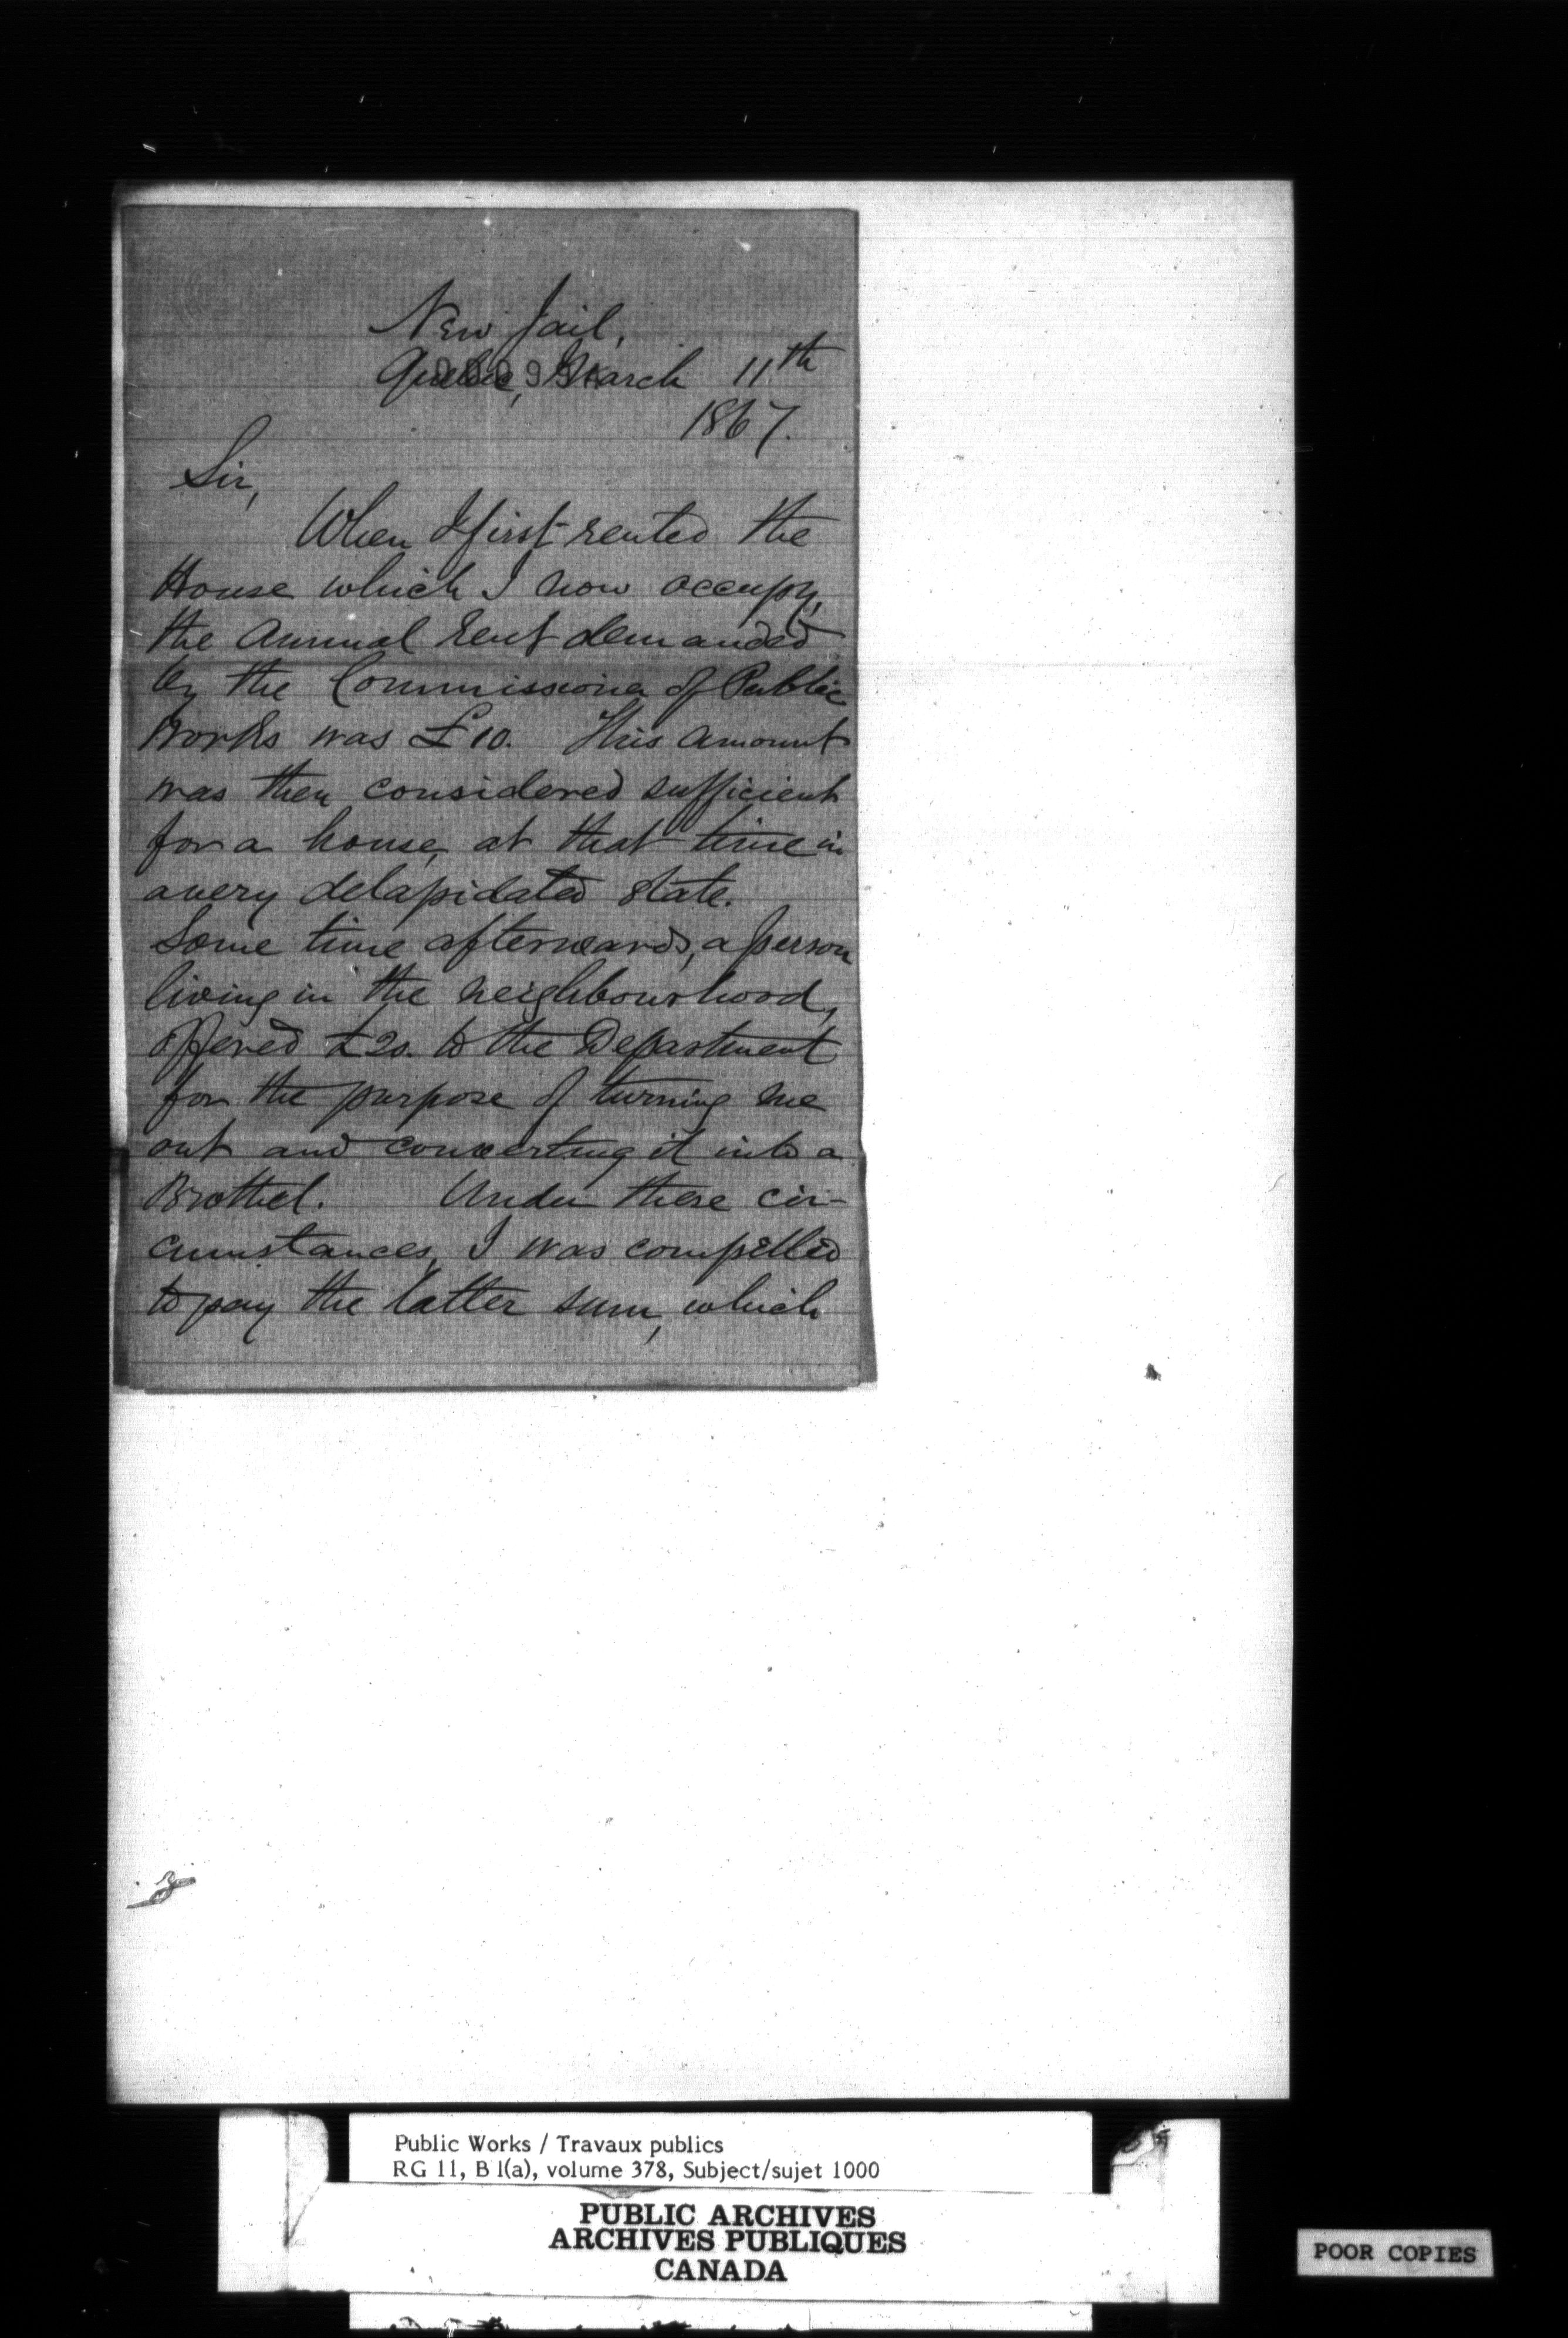 New Jail,
Quebec, March 11th
1867.
Sir,
When I first rented the
House which I now occupy,
the Annual Rent demanded
by the Commissioner of Public
Works was £10. This amount
was then considered sufficient
for a house, at that time in
a very delapidated state.
Some time afterwards, a person
living in the neighbourhood,
offered £20. to the Department
for the purpose of turning me
out and converting it into a
Brothel. Under these cir-
cumstances, I was compelled
to pay the latter sum, which
Public Works / Travaux publics
RG 11, B 1(a), volume 378, Subject/sujet 1000
PUBLIC ARCHIVES
ARCHIVES PUBLIQUES
CANADA
POOR COPIES